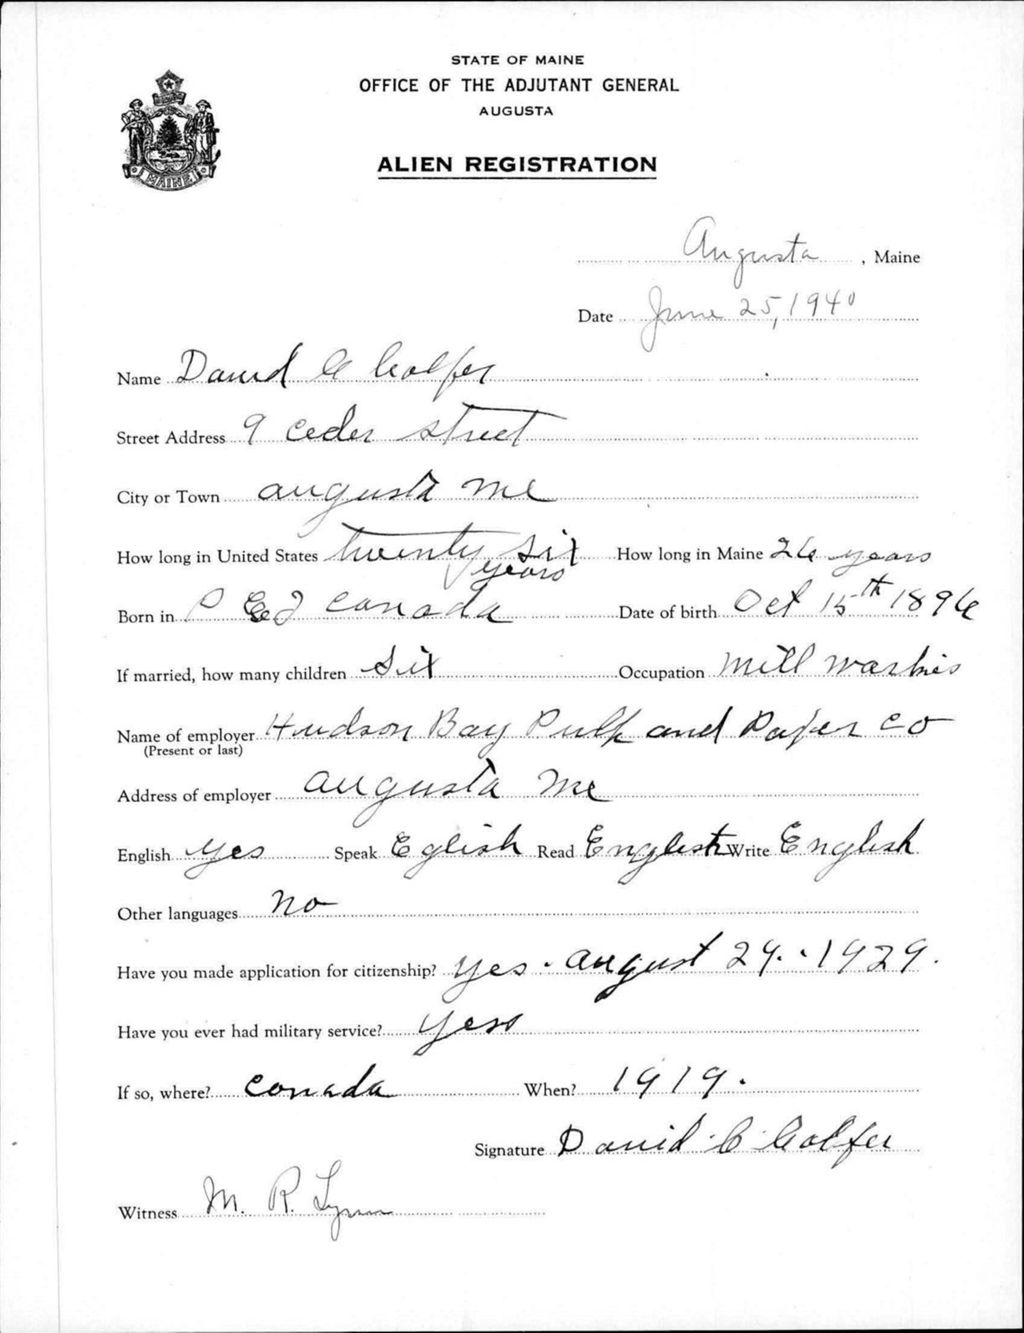 STATE OF MAINE
OFFICE OF THE ADJUTANT GENERAL
AUGUSTA
ALIEN REGISTRATION
MAINE
Augusta, Maine
Date June 25, 1940
Name David C Colfer
Street Address 9 Ceder Street
City or Town augusta me
How long in United States twenty six years How long in Maine 26 years
Born in P E I Canada Date of birth Oct 15th 1896
If married, how many children Six Occupation Mill
Name of employer Hudson Bay Pulp and Paper Co
(Present or last)
Address of employer augusta me
English yes Speak Eglish Read English Write English
Other languages no
Have you made application for citizenship? yes. august 29. 1929.
Have you ever had military service? yess
If so, where? Conada When? 1919.
Signature David C Colfer
Witness M. R. Lynn